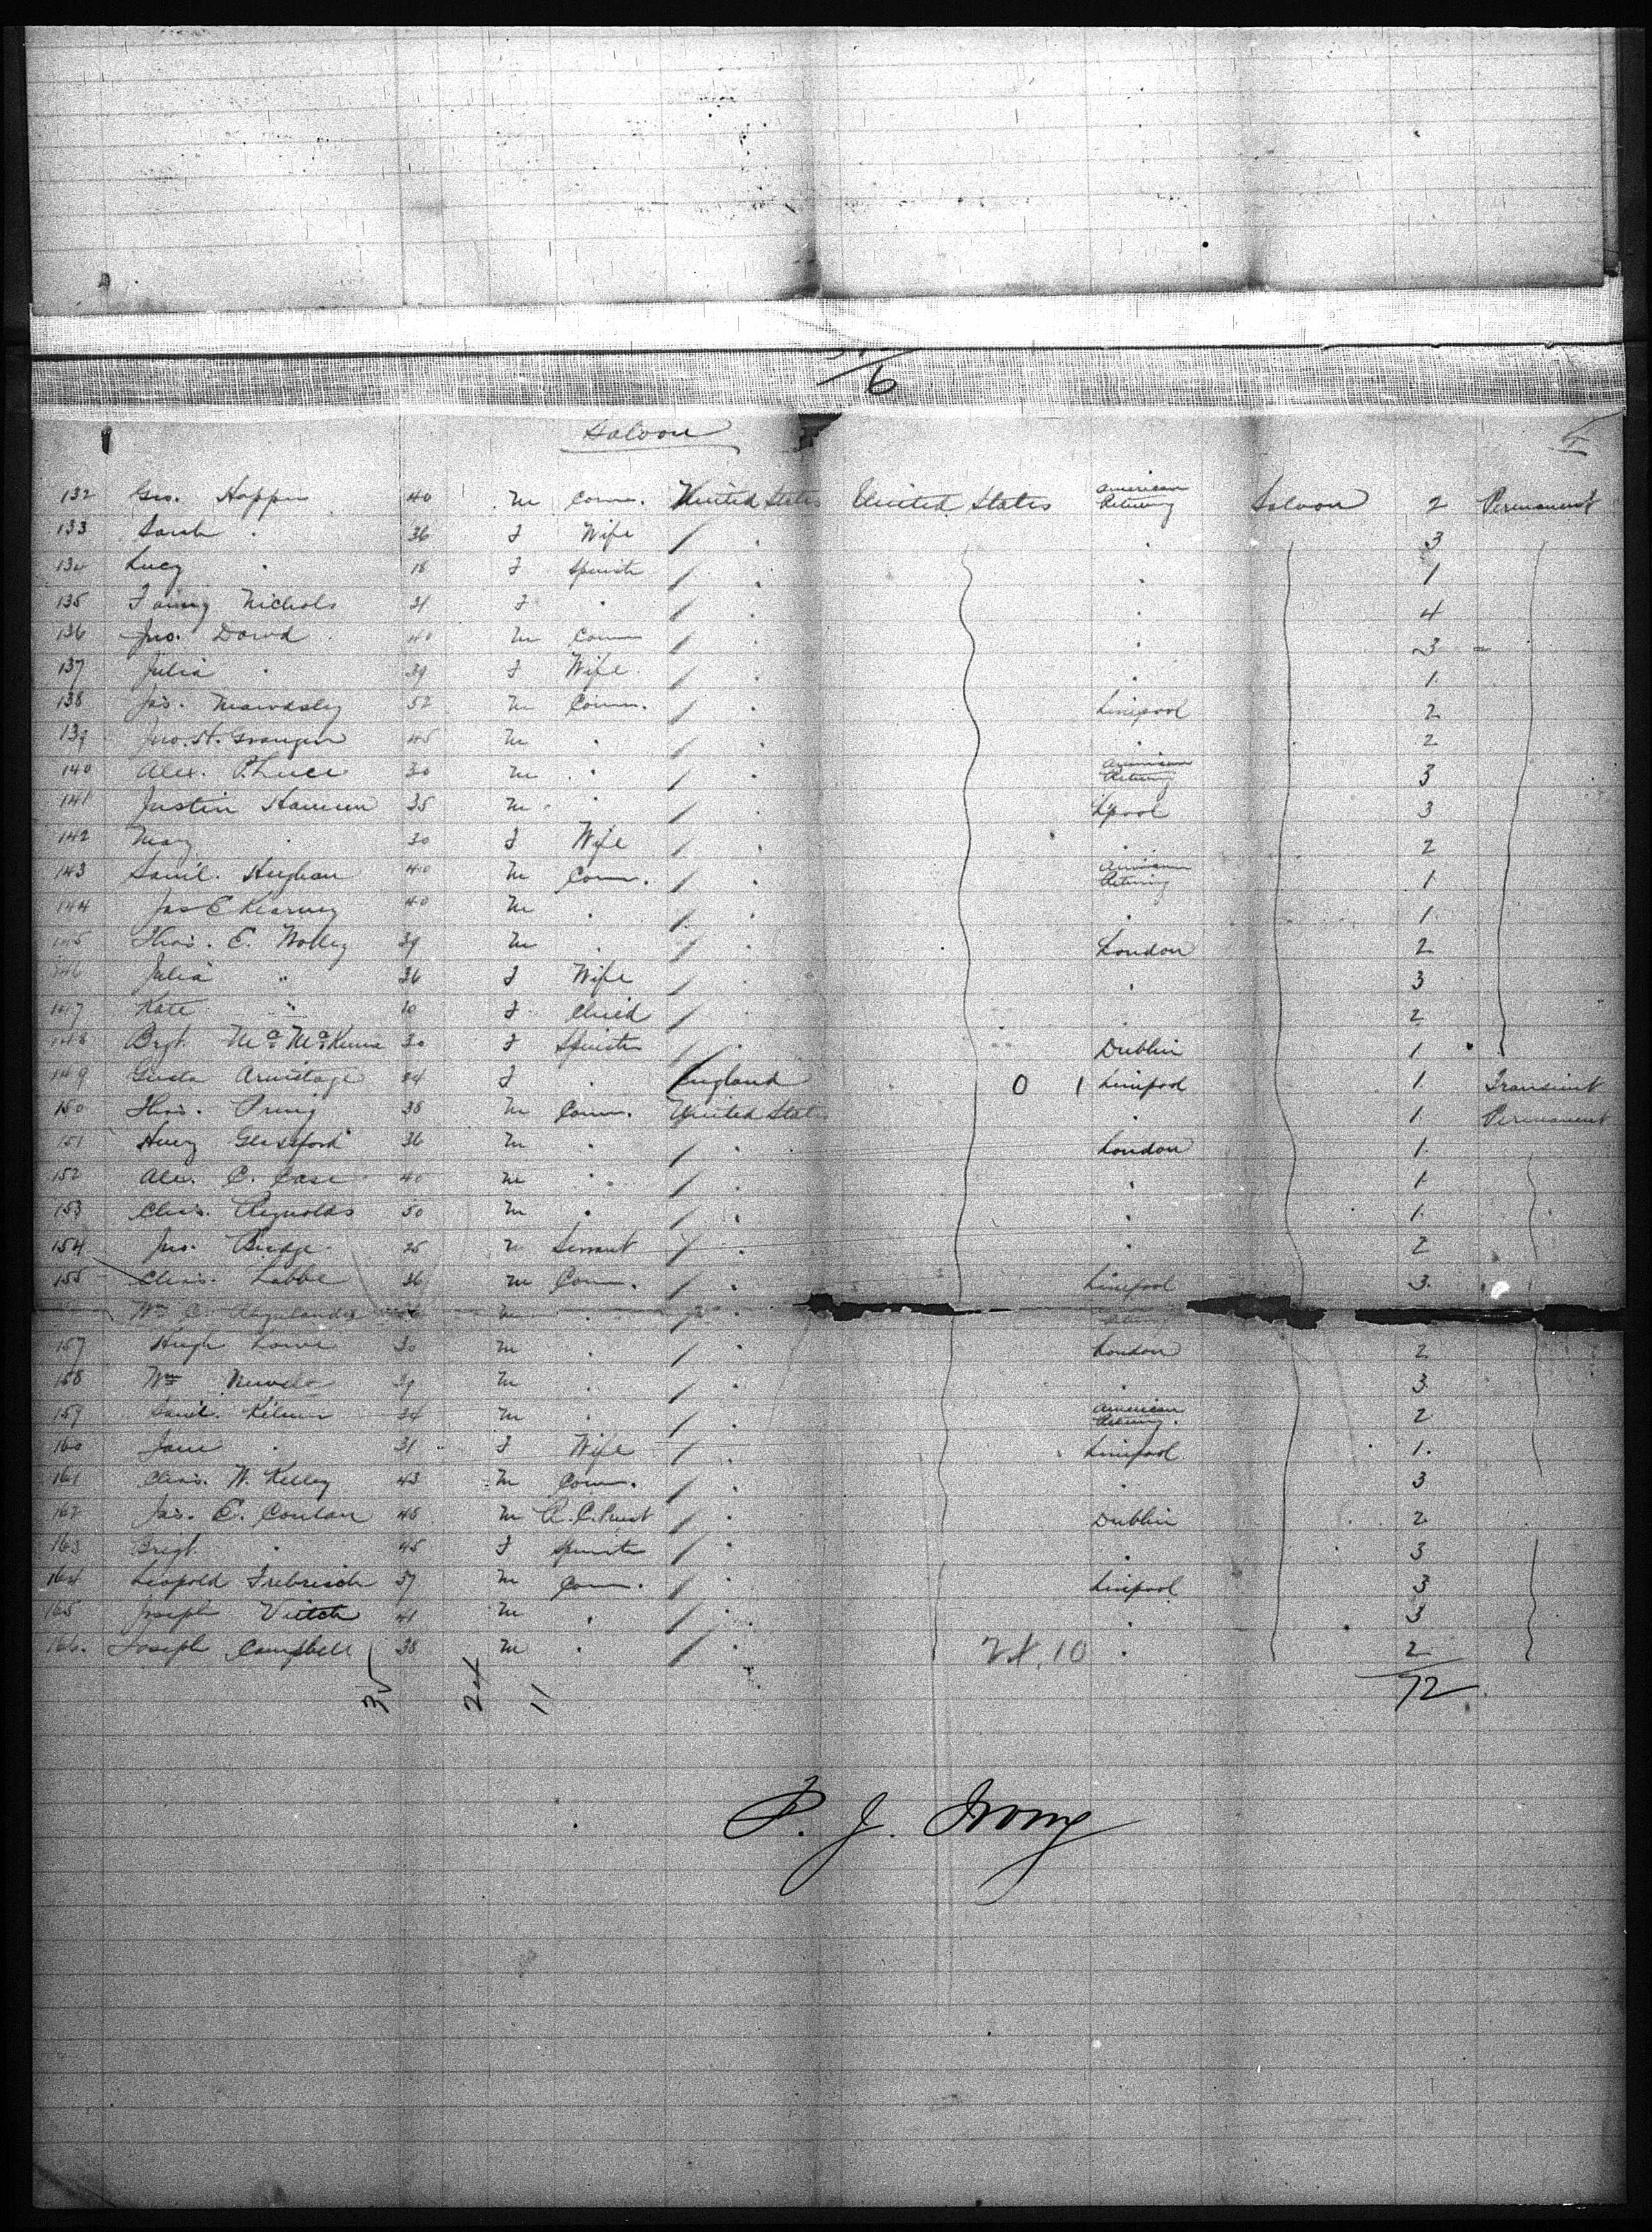 6
Saloon
132 Geo. Hoppin 40 m Comm. United States United States American Returning Saloon 2 Permanent
133 Sarah " 36 f Wife / " " 3
134 Lucy " 18 f Spinster / " " 1
135 Fanny Nichols 31 f " / " " 4
136 Jno. Dowd 40 m Comm / " " 3
137 Julia " 39 f Wife / " " 1
138 Jas. Mawdsley 52 m Comm. / " Liverpool 2
139 Jno. H. Granger 45 m " / " " 2
140 Alex. P. Luce 30 m " / " American Returning 3
141 Justin 35 m " / " Lpool 3
142 Mary " 30 f Wife / " " 2
143 Saml. Hughan 40 m Comm. / " American Returning 1
144 Jas E Kearney 40 m " / " " 1
145 Thos. E. 39 m " / " London 2
146 Julia " 36 f Wife / " " 3
147 Kate " 10 f Child / " " 2
148 Brgt. McKenna 30 f Spinster / " Dublin 1
149 Armitage 24 f " England 0 1 Liverpool 1 Transient
150 Thos. 38 m Comm. United States " 1 Permanent
151 Henry Glassford 36 m " / " London 1
152 Alex. C. Case 40 m " / " " 1
153 Chas. Reynolds 50 m " / " " 1
154 Jno. 25 m Servant / " " 2
155 Chas. Labbe 36 m Comm. / " Liverpool 3
Wm C. m " / "
157 Hugh Lowe 30 m " / " London 2
158 Wm 39 m " / " " 3
159 Saml. 34 m " / " American Returning 2
160 Jane " 31 f Wife / " Liverpool 1
161 Chas. W. Kelley 43 m Comm. / " " 3
162 Jas. E. Conlan 48 m R. C. Priest / " Dublin 2
163 Brigt. " 45 f Spinster / " " 3
164 Leopold 37 m Comm. / " Liverpool 3
165 Joseph Veitch 41 m " / " " 3
166 Joseph Campbell 38 m " / " 24.10 " 2
24 11 72